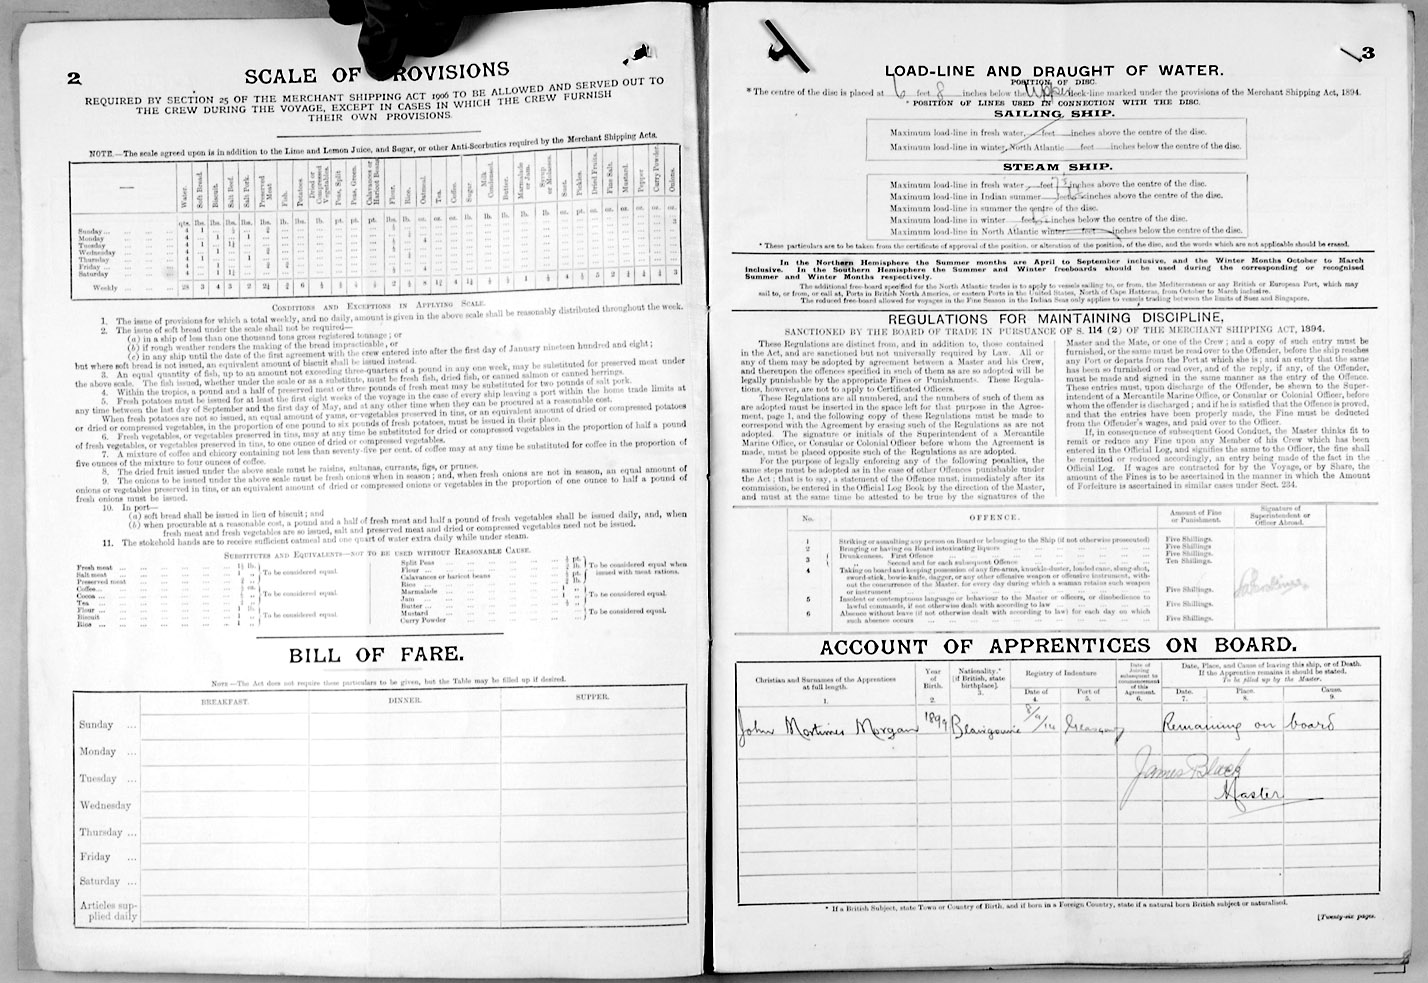 2
SCALE OF PROVISIONS
REQUIRED BY SECTION 25 OF THE MERCHANT SHIPPING ACT 1906 TO BE ALLOWED AND SERVED OUT TO
THE CREW DURING THE VOYAGE, EXCEPT IN CASES IN WHICH THE CREW FURNISH
THEIR OWN PROVISIONS.
NOTE.—The scale agreed upon is in addition to the Lime and Lemon Juice, and Sugar, or other Anti-Scorbutics required by the Merchant Shipping Acts.
Water. Soft Bread. Biscuit. Salt Beef. Salt Pork. Preserved Meat. Fish. Potatoes. Dried or Compressed Vegetables. Peas, Split. Peas, Green. Calavances or Haricot Beans. Flour. Rice. Oatmeal. Tea. Coffee. Sugar. Milk Condensed. Butter. Marmalade or Jam. Syrup or Molasses. Suet. Pickles. Dried Fruits. Fine Salt. Mustard. Pepper. Curry Powder. Onions.
Sunday
Monday
Tuesday
Wednesday
Thursday
Friday
Saturday
Weekly
CONDITIONS AND EXCEPTIONS IN APPLYING SCALE.
1. The issue of provisions for which a total weekly, and no daily, amount is given in the above scale shall be reasonably distributed throughout the week.
2. The issue of soft bread under the scale shall not be required—
(a) in a ship of less than one thousand tons gross registered tonnage; or
(b) if rough weather renders the making of the bread impracticable, or
(c) in any ship until the date of the first agreement with the crew entered into after the first day of January nineteen hundred and eight;
but where soft bread is not issued, an equivalent amount of biscuit shall be issued instead.
3. An equal quantity of fish, up to an amount not exceeding three-quarters of a pound in any one week, may be substituted for preserved meat under
the above scale. The fish issued, whether under the scale or as a substitute, must be fresh fish, dried fish, or canned salmon or canned herrings.
4. Within the tropics, a pound and a half of preserved meat or three pounds of fresh meat may be substituted for two pounds of salt pork.
5. Fresh potatoes must be issued for at least the first eight weeks of the voyage in the case of every ship leaving a port within the home trade limits at
any time between the last day of September and the first day of May, and at any other time when they can be procured at a reasonable cost.
When fresh potatoes are not so issued, an equal amount of yams, or vegetables preserved in tins, or an equivalent amount of dried or compressed potatoes
or dried or compressed vegetables, in the proportion of one pound to six pounds of fresh potatoes, must be issued in their place.
6. Fresh vegetables, or vegetables preserved in tins, may at any time be substituted for dried or compressed vegetables in the proportion of half a pound
of fresh vegetables, or vegetables preserved in tins, to one ounce of dried or compressed vegetables.
7. A mixture of coffee and chicory containing not less than seventy-five per cent. of coffee may at any time be substituted for coffee in the proportion of
five ounces of the mixture to four ounces of coffee.
8. The dried fruit issued under the above scale must be raisins, sultanas, currants, figs, or prunes.
9. The onions to be issued under the above scale must be fresh onions when in season; and, when fresh onions are not in season, an equal amount of
onions or vegetables preserved in tins, or an equivalent amount of dried or compressed onions or vegetables in the proportion of one ounce to half a pound of
fresh onions must be issued.
10. In port—
(a) soft bread shall be issued in lieu of biscuit; and
(b) when procurable at a reasonable cost, a pound and a half of fresh meat and half a pound of fresh vegetables shall be issued daily, and, when
fresh meat and fresh vegetables are so issued, salt and preserved meat and dried or compressed vegetables need not be issued.
11. The stokehold hands are to receive sufficient oatmeal and one quart of water extra daily while under steam.
SUBSTITUTES AND EQUIVALENTS—NOT TO BE USED WITHOUT REASONABLE CAUSE.
Fresh meat
Salt meat
Preserved meat
To be considered equal.
Coffee
Cocoa
Tea
To be considered equal.
Flour
Biscuit
Rice
To be considered equal.
Split Peas
Flour
Calavances or haricot beans
Rice
To be considered equal when
issued with meat rations.
Marmalade
Jam
Butter
To be considered equal.
Mustard
Curry Powder
To be considered equal.
BILL OF FARE.
NOTE—The Act does not require these particulars to be given, but the Table may be filled up if desired.
BREAKFAST. DINNER. SUPPER.
Sunday ...
Monday ...
Tuesday ...
Wednesday
Thursday ...
Friday ...
Saturday ...
Articles sup-
plied daily
3
LOAD-LINE AND DRAUGHT OF WATER.
POSITION OF DISC.
* The centre of the disc is placed at 6 feet 8 inches below the Upper deck-line marked under the provisions of the Merchant Shipping Act, 1894.
* POSITION OF LINES USED IN CONNECTION WITH THE DISC.
SAILING SHIP.
Maximum load-line in fresh water, feet inches above the centre of the disc.
Maximum load-line in winter, North Atlantic feet inches below the centre of the disc.
STEAM SHIP.
Maximum load-line in fresh water, feet inches above the centre of the disc.
Maximum load-line in Indian summer feet inches above the centre of the disc.
Maximum load-line in summer the centre of the disc.
Maximum load-line in winter feet inches below the centre of the disc.
Maximum load-line in North Atlantic winter feet inches below the centre of the disc.
* These particulars are to be taken from the certificate of approval of the position, or alteration of the position, of the disc, and the words which are not applicable should be erased.
In the Northern Hemisphere the Summer months are April to September inclusive, and the Winter Months October to March
inclusive. In the Southern Hemisphere the Summer and Winter freeboards should be used during the corresponding or recognised
Summer and Winter Months respectively.
The additional free-board specified for the North Atlantic trades is to apply to vessels sailing to, or from, the Mediterranean or any British or European Port, which may
sail to, or from, or call at, Ports in British North America, or eastern Ports in the United States, North of Cape Hatteras, from October to March inclusive.
The reduced free-board allowed for voyages in the Fine Season in the Indian Seas only applies to vessels trading between the limits of Suez and Singapore.
REGULATIONS FOR MAINTAINING DISCIPLINE,
SANCTIONED BY THE BOARD OF TRADE IN PURSUANCE OF S. 114 (2) OF THE MERCHANT SHIPPING ACT, 1894.
These Regulations are distinct from, and in addition to, those contained
in the Act, and are sanctioned but not universally required by Law. All or
any of them may be adopted by agreement between a Master and his Crew,
and thereupon the offences specified in such of them as are so adopted will be
legally punishable by the appropriate Fines or Punishments. These Regula-
tions, however, are not to apply to Certificated Officers.
These Regulations are all numbered, and the numbers of such of them as
are adopted must be inserted in the space left for that purpose in the Agree-
ment, page 1, and the following copy of these Regulations must be made to
correspond with the Agreement by erasing such of the Regulations as are not
adopted. The signature or initials of the Superintendent of a Mercantile
Marine Office, or Consular or Colonial Officer before whom the Agreement is
made, must be placed opposite such of the Regulations as are adopted.
For the purpose of legally enforcing any of the following penalties, the
same steps must be adopted as in the case of other Offences punishable under
the Act; that is to say, a statement of the Offence must, immediately after its
commission, be entered in the Official Log Book by the direction of the Master,
and must at the same time be attested to be true by the signatures of the
Master and the Mate, or one of the Crew; and a copy of such entry must be
furnished, or the same must be read over to the Offender, before the ship reaches
any Port or departs from the Port at which she is; and an entry that the same
has been so furnished or read over, and of the reply, if any, of the Offender,
must be made and signed in the same manner as the entry of the Offence.
These entries must, upon discharge of the Offender, be shewn to the Super-
intendent of a Mercantile Marine Office, or Consular or Colonial Officer, before
whom the offender is discharged; and if he is satisfied that the Offence is proved,
and that the entries have been properly made, the Fine must be deducted
from the Offender's wages, and paid over to the Officer.
If, in consequence of subsequent Good Conduct, the Master thinks fit to
remit or reduce any Fine upon any Member of his Crew which has been
entered in the Official Log, and signifies the same to the Officer, the fine shall
be remitted or reduced accordingly, an entry being made of the fact in the
Official Log. If wages are contracted for by the Voyage, or by Share, the
amount of the Fines is to be ascertained in the manner in which the Amount
of Forfeiture is ascertained in similar cases under Sect. 234.
No. OFFENCE. Amount of Fine or Punishment. Signature of Superintendent or Officer Abroad.
1 Striking or assaulting any person on Board or belonging to the Ship (if not otherwise prosecuted) Five Shillings.
2 Bringing or having on Board intoxicating liquors Five Shillings.
3 Drunkenness. First Offence Five Shillings.
Second and for each subsequent Offence Ten Shillings.
4 Taking on board and keeping possession of any fire-arms, knuckle-duster, loaded cane, slung-shot,
sword-stick, bowie-knife, dagger, or any other offensive weapon or offensive instrument, with-
out the concurrence of the Master, for every day during which a seaman retains such weapon
or instrument Five Shillings.
5 Insolent or contemptuous language or behaviour to the Master or officers, or disobedience to
lawful commands, if not otherwise dealt with according to law Five Shillings.
6 Absence without leave (if not otherwise dealt with according to law) for each day on which
such absence occurs Five Shillings.
ACCOUNT OF APPRENTICES ON BOARD.
Christian and Surnames of the Apprentices at full length. 1.
Year of Birth. 2.
Nationality.* [if British, state birthplace]. 3.
Registry of Indenture
Date of 4. Port of 5.
Date of Joining subsequent to commencement of this Agreement. 6.
Date, Place, and Cause of leaving this ship, or of Death.
If the Apprentice remains it should be stated.
To be filled up by the Master.
Date. 7. Place. 8. Cause. 9.
John Mortimer Morgan 1899 Blairgowrie 8/9/14 Glasgow Remaining on board
James Black
Master
* If a British Subject, state Town or Country of Birth, and if born in a Foreign Country, state if a natural born British subject or naturalised.
[Twenty-six pages.